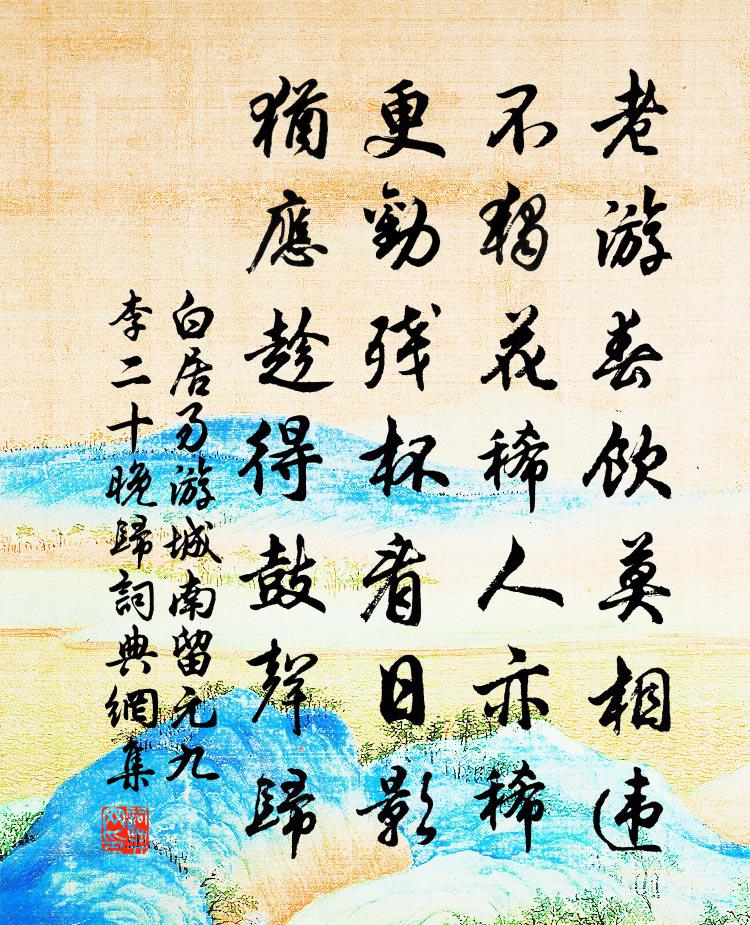 老游春饮莫相违
不獨花稀人亦稀
更勸残杯看日影
猶應趁得鼓聲歸
白居易游城南留元九
李二十晚歸詞典網集